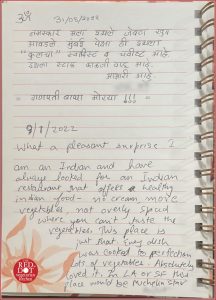 ॐ 31/05/2022
नमस्कार मला इथले जेवण खुप
आवडले मुंबई पेक्षा ही इथला
स्वादिष्ट व चविष्ट आहे
इथला स्टाफ
आभारी आहे
= गणपती बाप्पा मोरया !!! =
9/8/2022
What a pleasant surprise I
am an Indian and have
always looked for an Indian
restaurant that offers a healthy
indian food - no cream more
vegetables not overly spiced
where you can't taste the
vegetables. This place is
just that. Every dish
was cooked to perfection
lots of vegetables. Absolutely
loved it. In LA or SF this
place would be Michelin Star
RED
DOT